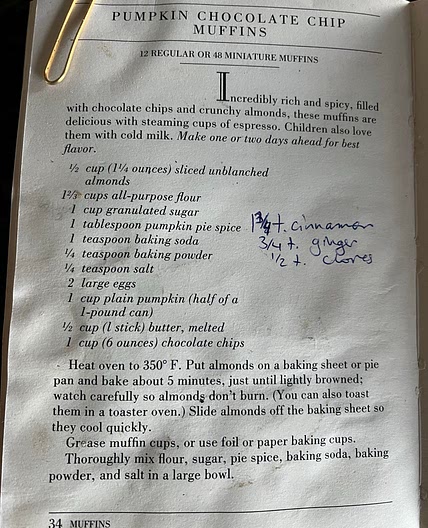 PUMPKIN CHOCOLATE CHIP
MUFFINS
12 REGULAR OR 48 MINIATURE MUFFINS
Incredibly rich and spicy, filled
with chocolate chips and crunchy almonds, these muffins are
delicious with steaming cups of espresso. Children also love
them with cold milk. Make one or two days ahead for best
flavor.
½ cup (1¼ ounces) sliced unblanched
almonds
1⅔ cups all-purpose flour
1 cup granulated sugar
1 tablespoon pumpkin pie spice 1¾ t. cinnamon
3/4 t. ginger
1 teaspoon baking soda
1/2 t. cloves
¼ teaspoon baking powder
¼ teaspoon salt
2 large eggs
1 cup plain pumpkin (half of a
1-pound can)
½ cup (1 stick) butter, melted
1 cup (6 ounces) chocolate chips
Heat oven to 350° F. Put almonds on a baking sheet or pie
pan and bake about 5 minutes, just until lightly browned;
watch carefully so almonds don't burn. (You can also toast
them in a toaster oven.) Slide almonds off the baking sheet so
they cool quickly.
Grease muffin cups, or use foil or paper baking cups.
Thoroughly mix flour, sugar, pie spice, baking soda, baking
powder, and salt in a large bowl.
34 MUFFINS